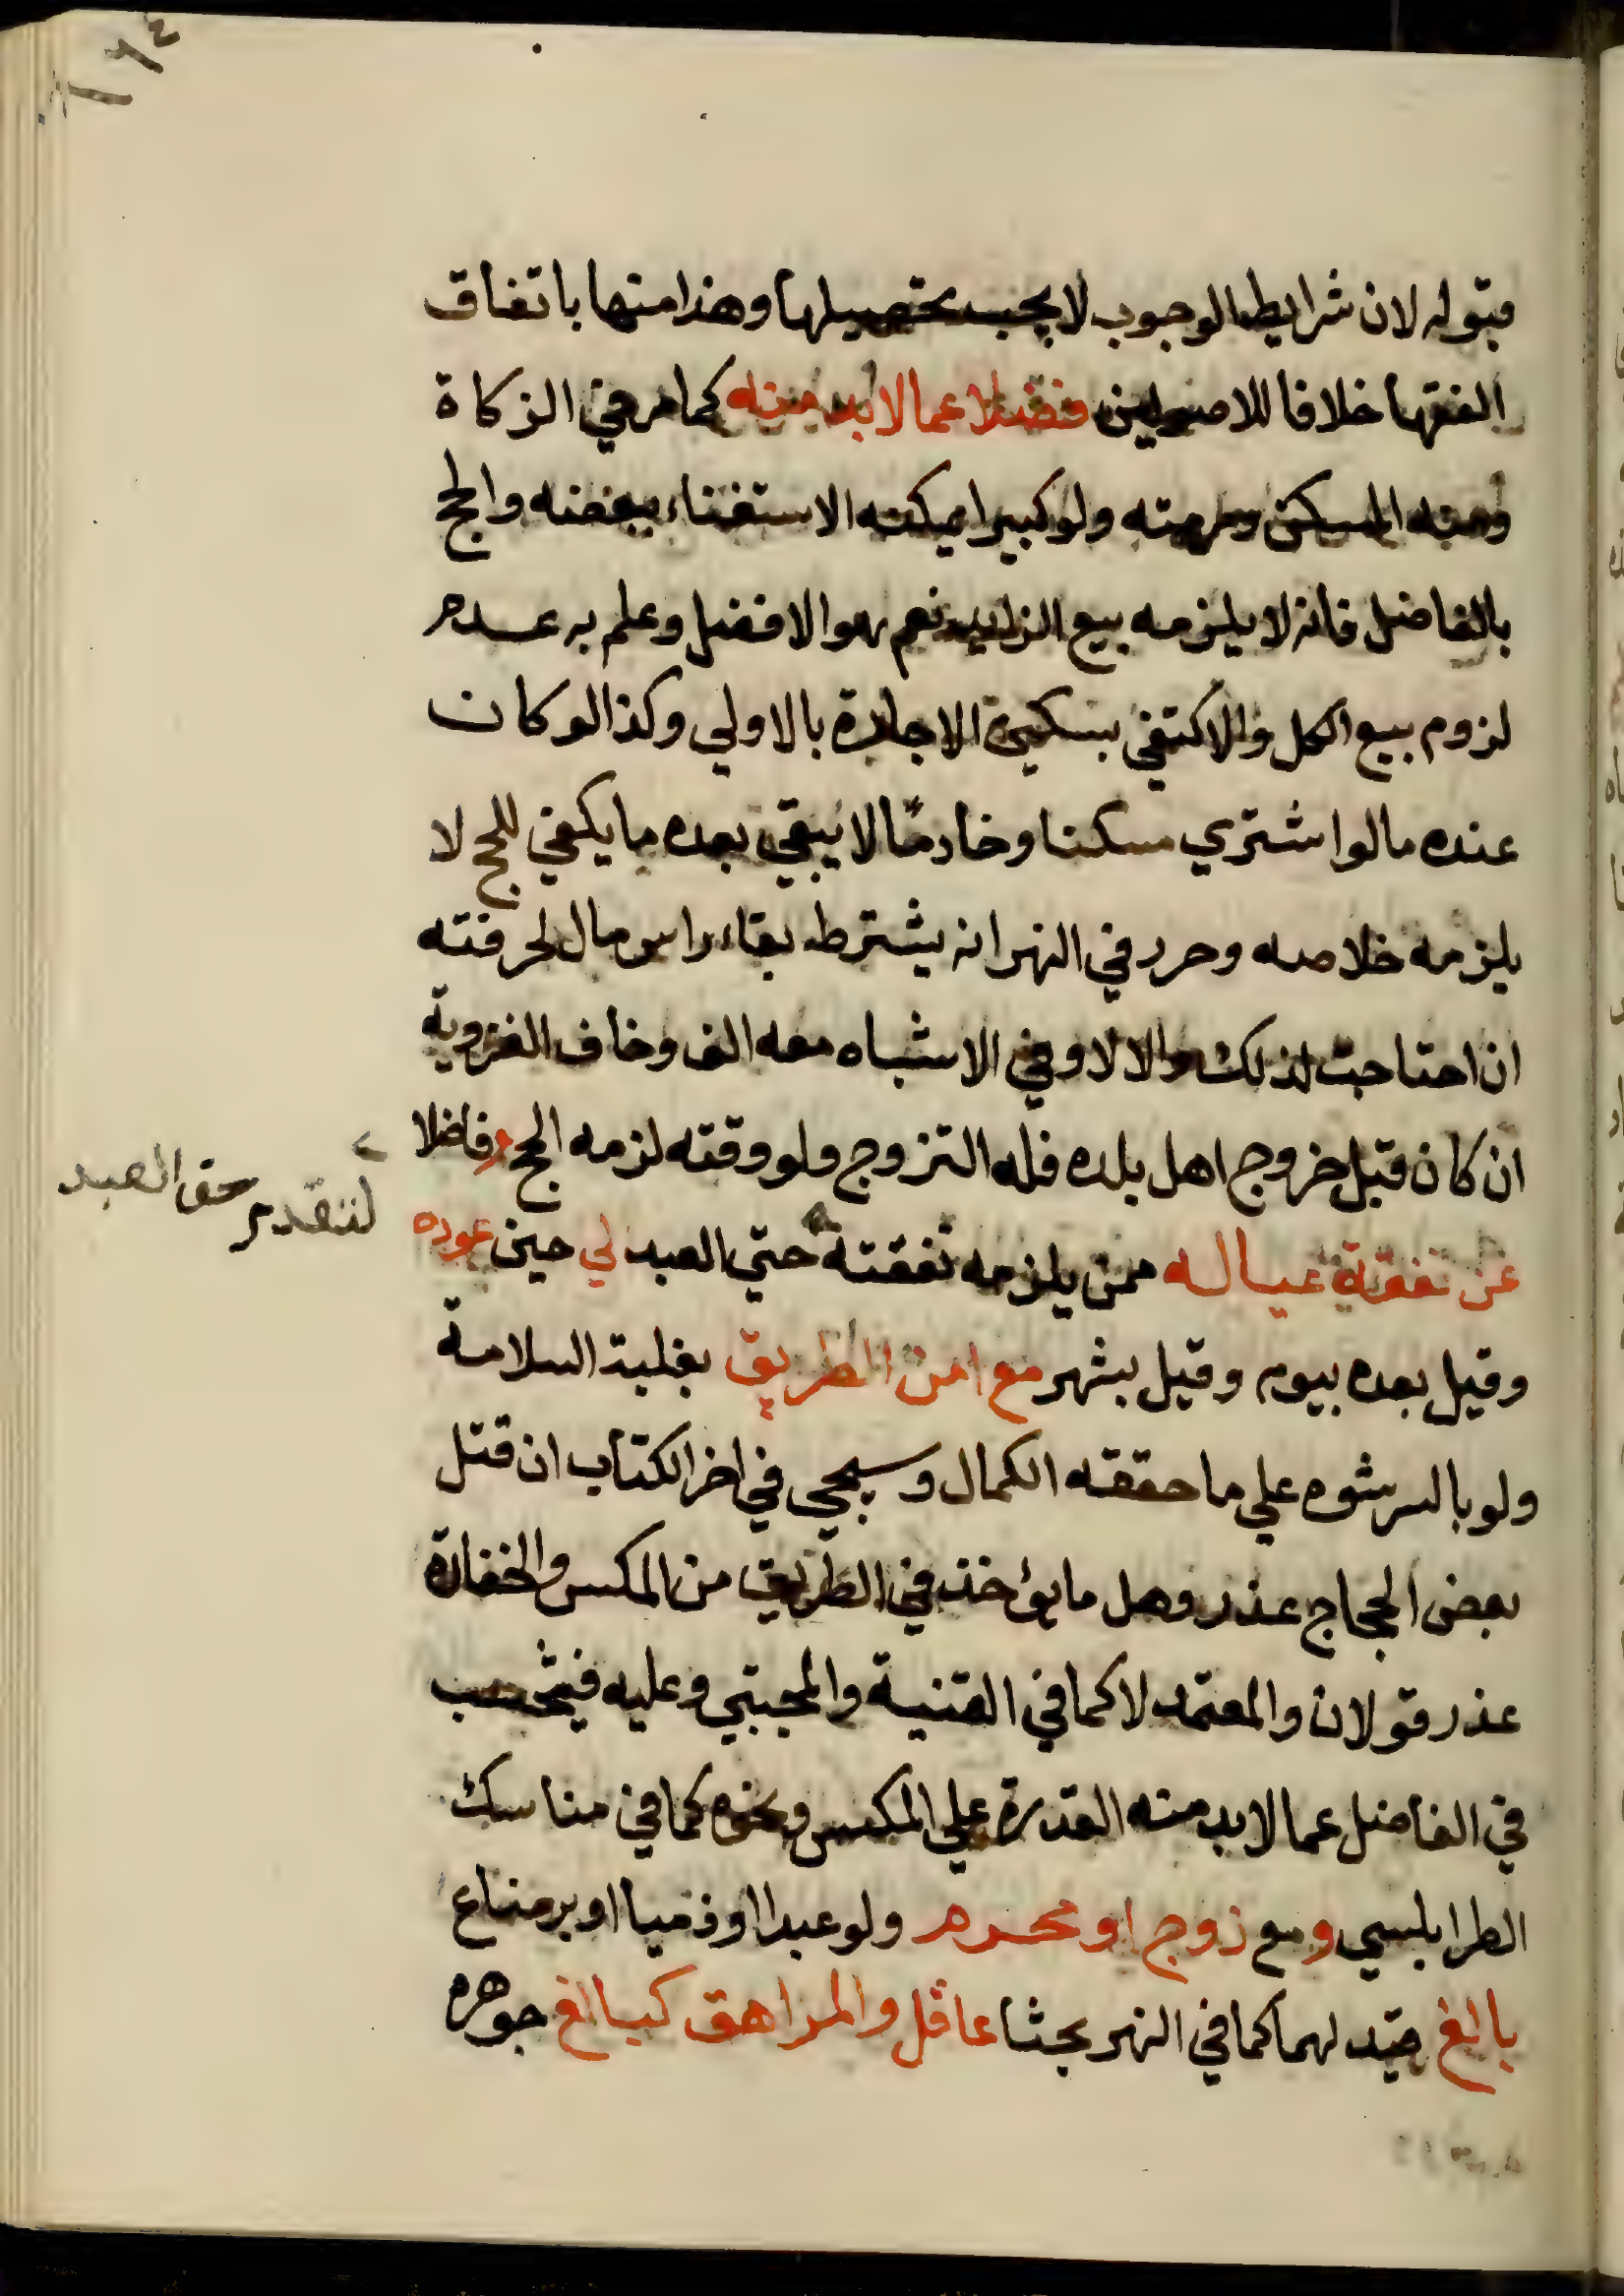 ١٦٤
قبوله لان شرايط الوجوب لا يجب تحصيلها وهذا منها باتفاق
الفقها خلافا للاصوليين فضلا عما لا بد منه كما مر في الزكاة
ومنه المسكن ومرمته ولو كبيرا يمكنه الاستغناء ببعضه والحج
بالفاضل فانه لا يلزمه بيع الزايد نعم هو الافضل وعلم به عدم
لزوم بيع الكل والاكتفي بسكني الاجارة بالاولي وكذا لو كان
عنده ما لو اشتري مسكنا وخادمًا لا يبقي بعده ما يكفي للحج لا
يلزمه خلاصه وحرر في النهر انه يشترط بقاء راس مال لحرفته
ان احتاجت لذلك والا لا وفي الاشباه معه الف وخاف العزوبة
ان كان قبل خروج اهل بلده فله التزوج ولو وقته لزمه الحج وفاضلا
عن نفقة عياله ممن يلزمه نفقته حتي العبد لي حين عوده
لتقدم حق العبد
وقيل بعده بيوم وقيل بشهر مع امن الطريق بغلبة السلامة
ولو بالرشوه علي ما حققه الكمال وسيجي في اخر الكتاب ان قتل
بعض الحجاج عذر وهل ما يؤخذ في الطريق من المكس والخفارة
عذر قولان والمعتمد لا كما في القنية والمجتبي وعليه فيحتسب
في الفاضل عما لا بد منه القدرة علي المكس ونحوه كما في مناسك
الطرابلسي ومع زوج او محرم ولو عبدا او ذميا او برضاع
بالغ قيد لهما كما في النهر بحثا عاقل والمراهق كبالغ جوهره